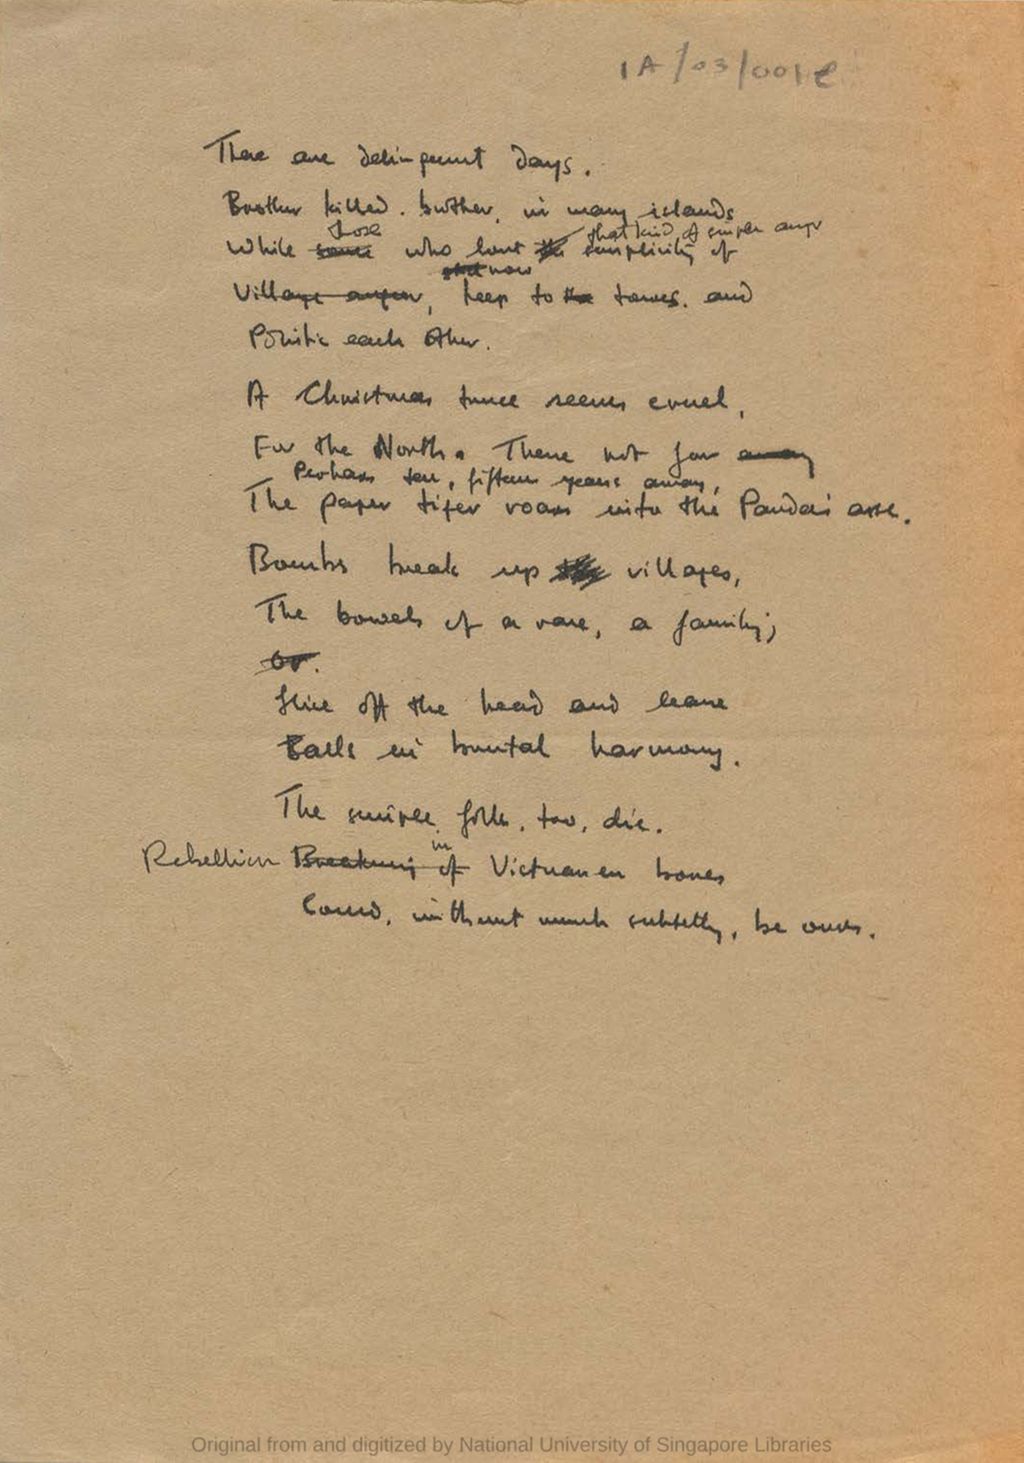 1A/03/001e
There are delinquent days.
Brother killed. brother, in many islands
those that kind of simple anger
While some who lost the simplicity of
still now
Village anger, keep to the towns. and
Politic each other.
A Christmas truce seems cruel,
For the North. There not far away
Perhaps ten, fifteen years away,
The paper tiger roars into the Panda's arse.
Bombs break up villages,
The bowels of a race, a family;
or.
Slice off the head and leave
Balls in brutal harmony.
The simple folk, too, die.
in
Rebellion Breaking of Vietnamen bones
Could, without much subtelty, be ours.
Original from and digitized by National University of Singapore Libraries